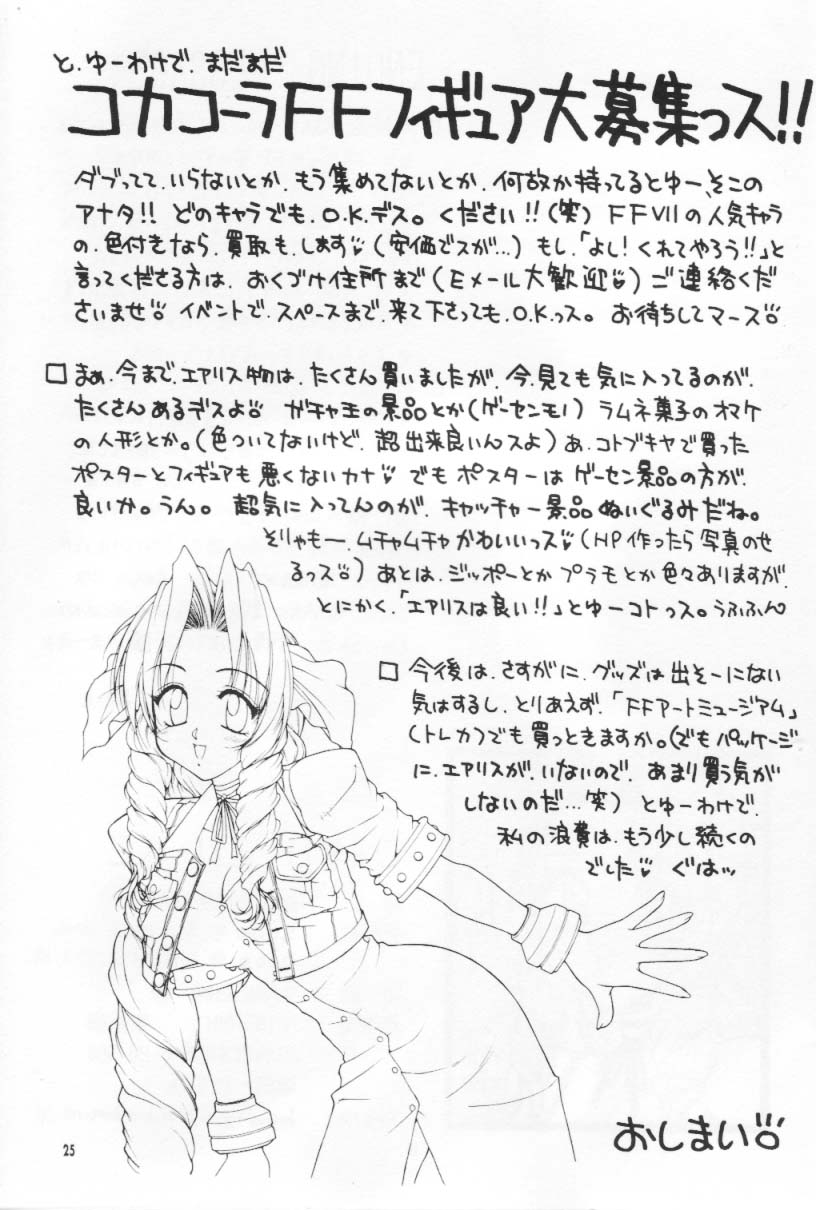 と、ゆーわけで、まだまだ
コカコーラFFフィギュア大募集っス!!
ダブってて、いらないとか、もう集めてないとか、何故か持ってるとゆー、そこの
アナタ!! どのキャラでも、O.K.デス。ください!!(笑) FFVIIの人気キャラ
の、色付きなら、買取も、します(安価でスが…)もし、「よし!くれてやろう!!」と
言ってくださる方は、おくづけ住所まで(Eメール大歓迎)ご連絡くだ
さいませ イベントで、スペースまで、来て下さっても、O.K.っス。お待ちしてマース
□ まぁ、今まで、エアリス物は、たくさん買いましたが、今、見ても気に入ってるのが、
たくさんあるデスよ ガチャ王の景品とか(ゲーセンモノ)ラムネ菓子のオマケ
の人形とか。(色ついてないけど、超出来良いんスよ)あ、コトブキヤで買った
ポスターとフィギュアも悪くないカナ でもポスターはゲーセン景品の方が、
良いか。うん。 超気に入ってんのが、キャッチャー景品ぬいぐるみだね。
そりゃもー、ムチャムチャかわいいっス(HP作ったら写真のせ
るっス)あとは、ジッポーとかプラモとか色々ありますが、
とにかく、「エアリスは良い!!」とゆーコトっス。うふふん
□ 今後は、さすがに、グッズは出そーにない
気はするし、とりあえず、「FFアートミュージアム」
(トレカ)でも買っときますか。(でもパッケージ
に、エアリスが、いないので、あまり買う気が
しないのだ…笑) とゆーわけで、
私の浪費は、もう少し続くの
でした ぐはッ
おしまい
25